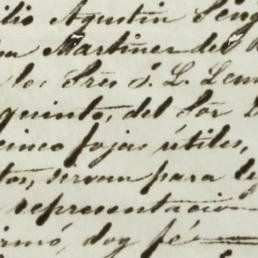 ilio Agustin Seng
Martinez del
los Sres S. L. Lem
quinto, del Sor
cinco fojas útiles,
tos, sirvan para le
representacion
irmó, doy fé